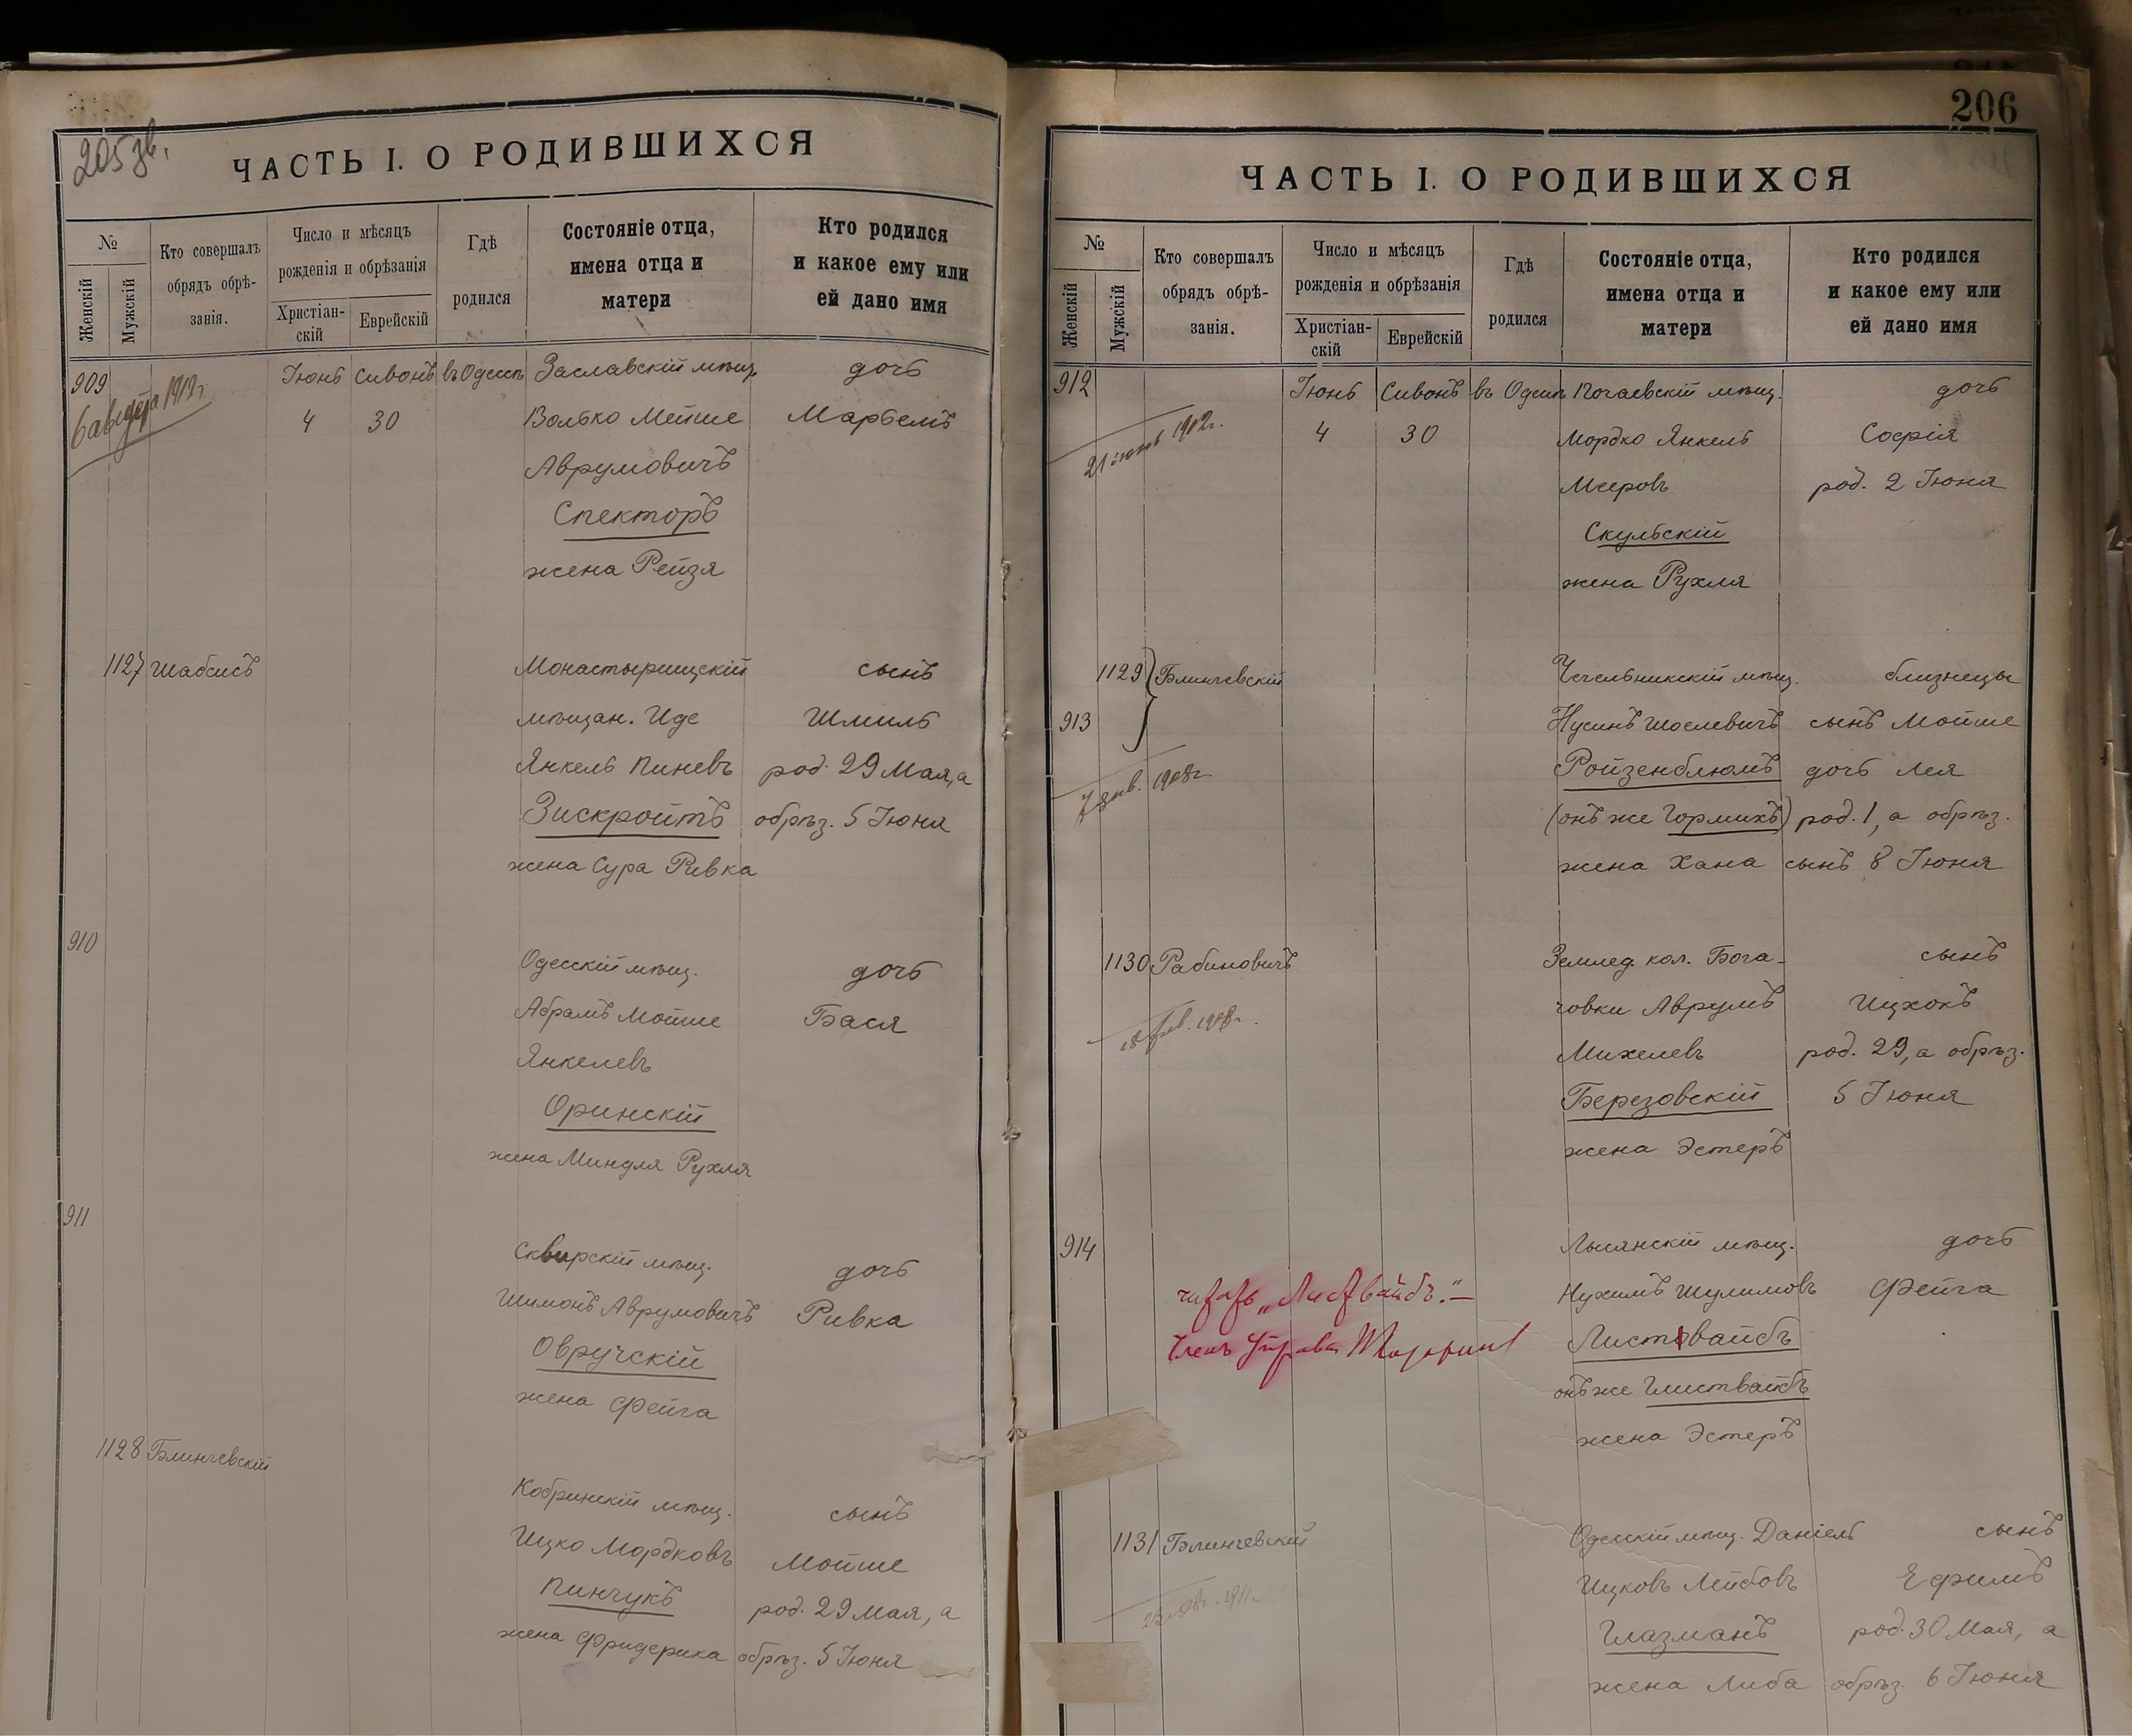 205 зв.
ЧАСТЬ I. О РОДИВШИХСЯ
№
Женскій
Мужскій
Кто совершалъ
обрядъ обрѣ-
занія.
Число и мѣсяцъ
рожденія и обрѣзанія
Христіан-
скій
Еврейскій
Гдѣ
родился
Состояніе отца,
имена отца и
матери
Кто родился
и какое ему или
ей дано имя
909 Іюнь Сивонъ въ Одессѣ Заславскій мѣщ. дочь
6 августа 1912 г.
4 30 Волько Мейше Марьемъ
Аврумовичъ
Спекторъ
жена Рейзя
1127 Шабсисъ Монастырищскій сынъ
мѣщан. Иде Шмиль
Янкель Пиневъ род. 29 Мая, а
Зискройтъ обрѣз. 5 Іюня
жена Сура Ривка
910
Одесскій мѣщ. дочь
Абрамъ Мойше Бася
Янкелевъ
Оринскій
жена Миндля Рухля
911
Сквирскій мѣщ. дочь
Шимонъ Аврумовичъ Ривка
Овручскій
жена Фейга
1128 Блинчевскій
Кобринскій мѣщ. сынъ
Ицко Мордковъ Мойше
Пинчукъ род. 29 Мая, а
жена Фридерика обрѣз. 5 Іюня
206
ЧАСТЬ I. О РОДИВШИХСЯ
№
Женскій
Мужскій
Кто совершалъ
обрядъ обрѣ-
занія.
Число и мѣсяцъ
рожденія и обрѣзанія
Христіан-
скій
Еврейскій
Гдѣ
родился
Состояніе отца,
имена отца и
матери
Кто родился
и какое ему или
ей дано имя
912 Іюнь Сивонъ въ Одессѣ Почаевскій мѣщ. дочь
4 30 Мордко Янкель Софія
21 1902 г.
Мееровъ род. 2 Іюня
Скульскій
жена Рухля
1129 Блинчевскій Чечельникскій мѣщ. близнецы
913 Нусинъ Шоелевичъ сынъ Мойше
Ройзенблюмъ дочь Лея
7 1908 г.
(онъ же Гормихъ) род. 1, а обрѣз.
жена Хана сынъ 8 Іюня
1130 Рабиновичъ Землед. кол. Бога- сынъ
човки Аврумъ Ицхокъ
18 1908 г.
Михелевъ род. 29, а обрѣз.
Березовскій 5 Іюня
жена Эстеръ
914 Лысянскій мѣщ. дочь
читать „Листвайбъ".—
Нухимъ Шулимовъ Фейга
Членъ Управы
Листвайбъ
онъ же Глиствайбъ
жена Эстеръ
1131 Блинчевскій Одесскій мѣщ. Даніель сынъ
Ицковъ Лейбовъ Ефимъ
1911
Глазманъ род. 30 Мая, а
жена Либа обрѣз. 6 Іюня